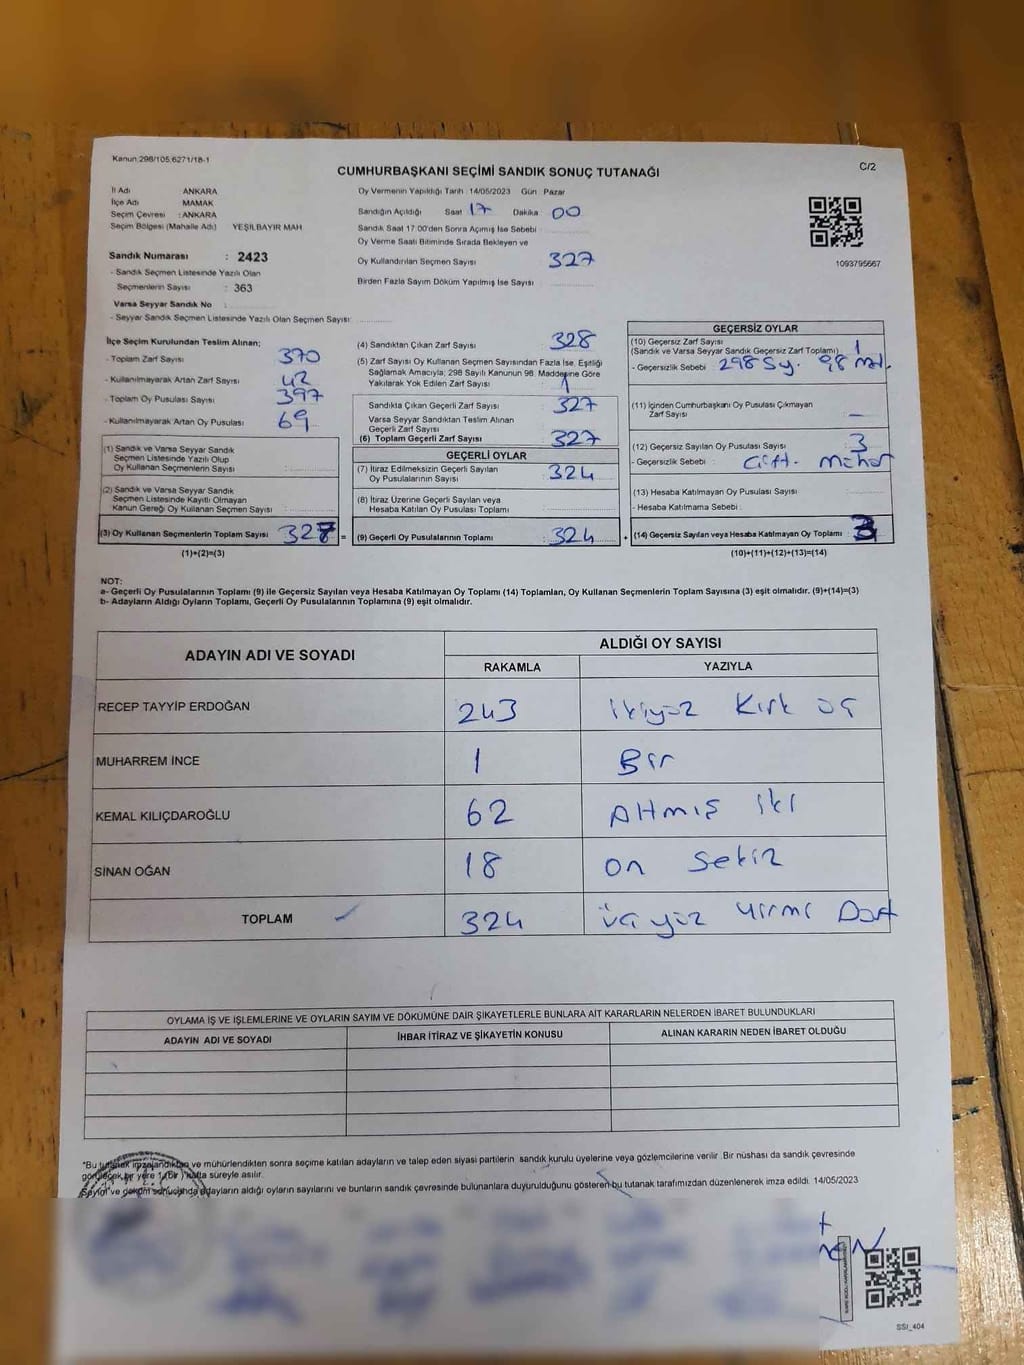 Kanun 298/105,6271/18-1
CUMHURBAŞKANI SEÇİMİ SANDIK SONUÇ TUTANAĞI
C/2
İl Adı ANKARA
İlçe Adı MAMAK
Seçim Çevresi : ANKARA
Seçim Bölgesi (Mahalle Adı) YEŞİLBAYIR MAH
Sandık Numarası : 2423
- Sandık Seçmen Listesinde Yazılı Olan
Seçmenlerin Sayısı : 363
Varsa Seyyar Sandık No :
- Seyyar Sandık Seçmen Listesinde Yazılı Olan Seçmen Sayısı:
Oy Vermenin Yapıldığı Tarih 14/05/2023 Gün Pazar
Sandığın Açıldığı Saat 17 Dakika 00
Sandık Saat 17.00'den Sonra Açımış İse Sebebi
Oy Verme Saati Bitiminde Sırada Bekleyen ve
Oy Kullandırılan Seçmen Sayısı 327
Birden Fazla Sayım Döküm Yapılmış İse Sayısı
1093795667
İlçe Seçim Kurulundan Teslim Alınan;
- Toplam Zarf Sayısı 370
- Kullanılmayarak Artan Zarf Sayısı 42
- Toplam Oy Pusulası Sayısı 397
- Kullanılmayarak Artan Oy Pusulası 69
(1) Sandık ve Varsa Seyyar Sandık
Seçmen Listesinde Yazılı Olup
Oy Kullanan Seçmenlerin Sayısı :
(2) Sandık ve Varsa Seyyar Sandık
Seçmen Listesinde Kayıtlı Olmayan
Kanun Gereği Oy Kullanan Seçmen Sayısı :
(3) Oy Kullanan Seçmenlerin Toplam Sayısı 327 =
(1)+(2)=(3)
(4) Sandıktan Çıkan Zarf Sayısı 328
(5) Zarf Sayısı Oy Kullanan Seçmen Sayısından Fazla İse, Eşitliği
Sağlamak Amacıyla; 298 Sayılı Kanunun 98. Maddesine Göre
Yakılarak Yok Edilen Zarf Sayısı : 1
Sandıkta Çıkan Geçerli Zarf Sayısı : 327
Varsa Seyyar Sandıktan Teslim Alınan
Geçerli Zarf Sayısı
(6) Toplam Geçerli Zarf Sayısı : 327
GEÇERLİ OYLAR
(7) İtiraz Edilmeksizin Geçerli Sayılan
Oy Pusulalarının Sayısı : 324
(8) İtiraz Üzerine Geçerli Sayılan veya
Hesaba Katılan Oy Pusulası Toplamı :
(9) Geçerli Oy Pusulalarının Toplamı : 324 +
GEÇERSİZ OYLAR
(10) Geçersiz Zarf Sayısı
(Sandık ve Varsa Seyyar Sandık Geçersiz Zarf Toplamı) 1
- Geçersizlik Sebebi : 298 Sy. 98 Md.
(11) İçinden Cumhurbaşkanı Oy Pusulası Çıkmayan
Zarf Sayısı –
(12) Geçersiz Sayılan Oy Pusulası Sayısı : 3
- Geçersizlik Sebebi : Çift. Mühür
(13) Hesaba Katılmayan Oy Pusulası Sayısı :
- Hesaba Katılmama Sebebi :
(14) Geçersiz Sayılan veya Hesaba Katılmayan Oy Toplamı : 3
(10)+(11)+(12)+(13)=(14)
NOT:
a- Geçerli Oy Pusulalarının Toplamı (9) ile Geçersiz Sayılan veya Hesaba Katılmayan Oy Toplamı (14) Toplamları, Oy Kullanan Seçmenlerin Toplam Sayısına (3) eşit olmalıdır. (9)+(14)=(3)
b- Adayların Aldığı Oyların Toplamı, Geçerli Oy Pusulalarının Toplamına (9) eşit olmalıdır.
ADAYIN ADI VE SOYADI
ALDIĞI OY SAYISI
RAKAMLA YAZIYLA
RECEP TAYYİP ERDOĞAN 243 ikiyüz Kırk üç
MUHARREM İNCE 1 Bir
KEMAL KILIÇDAROĞLU 62 Altmış iki
SİNAN OĞAN 18 on sekiz
TOPLAM 324 üç yüz yirmi Dört
OYLAMA İŞ VE İŞLEMLERİNE VE OYLARIN SAYIM VE DÖKÜMÜNE DAİR ŞİKAYETLERLE BUNLARA AİT KARARLARIN NELERDEN İBARET BULUNDUKLARI
ADAYIN ADI VE SOYADI İHBAR İTİRAZ VE ŞİKAYETİN KONUSU ALINAN KARARIN NEDEN İBARET OLDUĞU
*Bu tutanak imzalandıktan ve mühürlendikten sonra seçime katılan adayların ve talep eden siyasi partilerin sandık kurulu üyelerine veya gözlemcilerine verilir. Bir nüshası da sandık çevresinde
görülecek bir yere 1 (bir) hafta süreyle asılır.
Sayım ve döküm sonucunda adayların aldığı oyların sayılarını ve bunların sandık çevresinde bulunanlara duyurulduğunu gösteren bu tutanak tarafımızdan düzenlenerek imza edildi. 14/05/2023
SSI_404